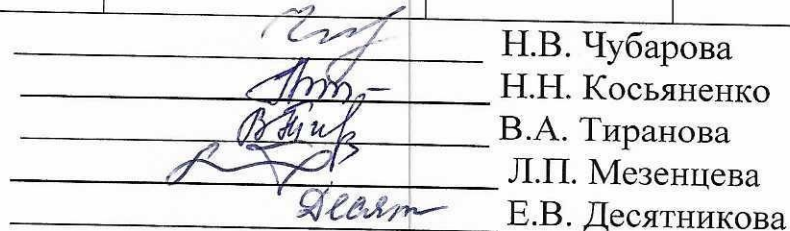 Н.В. Чубарова
Н.Н. Косьяненко
В.А. Тиранова
Л.П. Мезенцева
Десят Е.В. Десятникова